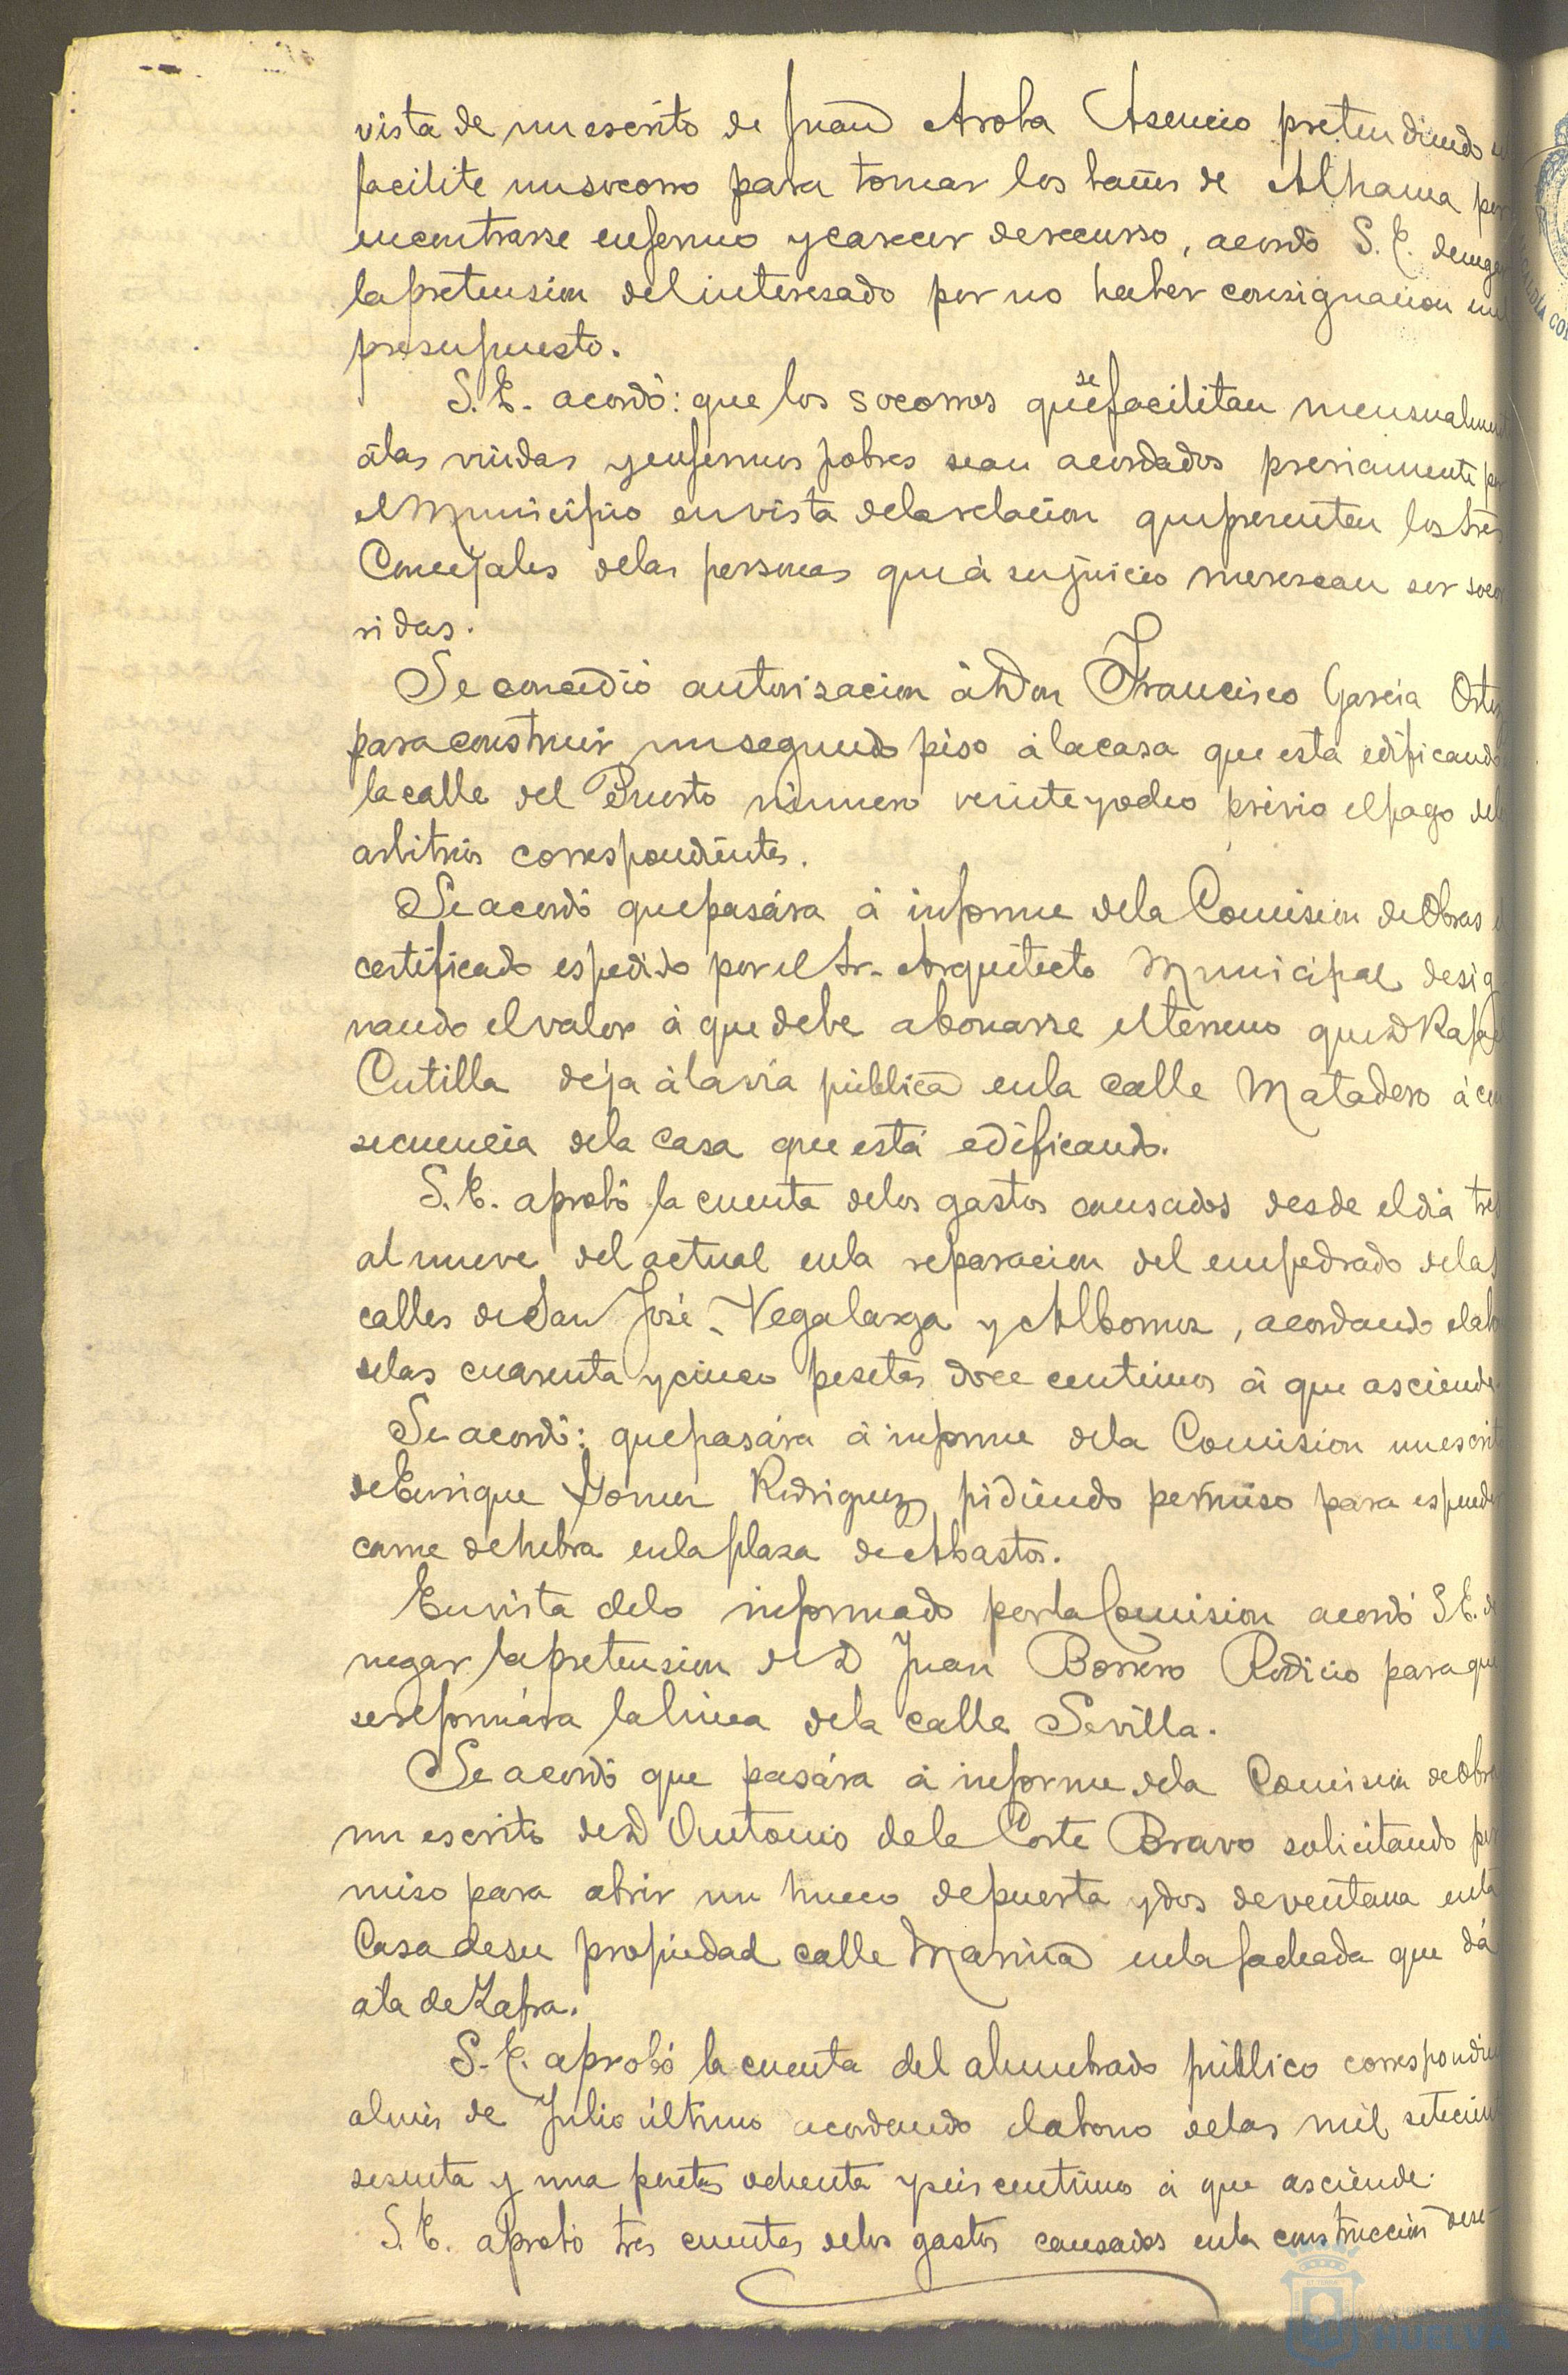 vista de un escrito de Juan Aroba Asencio pretendiendo
facilite un socorro para tomar los baños de Alhama por
encontrarse enfermo y carecer de recurso, acordó S. E. denegar
la pretension del interesado por no haber consignacion en
presupuesto.
S. E. acordó: que los socorros que se facilitan mensualment
á las viudas y enfermos pobres sean acordados previamente por
el Municipio en vista de la relacion que presenten los tres
Concejales de las personas que á su juicio merezcan ser socor
ridas.
Se concedió autorizacion á Don Francisco García Ortiz
para construir un segundo piso á la casa que está edificando
la calle del Puerto número veinte y ocho prévio el pago del
arbitrios correspondientes.
Se acordó que pasára á informe de la Comision de Obras el
certificado espedido por el Sr. Arquitecto Municipal desig
nando el valor á que debe abonarse el terreno que D Rafael
Cutilla deja á la vía pública en la calle Matadero á con
secuencia de la casa que está edificando.
S. E. aprobó la cuenta de los gastos causados desde el dia tres
al nueve del actual en la reparacion del empedrado de las
calles de San José, Vegalarga y Albornoz, acordando el abo
de las cuarenta y cinco pesetas doce centimos á que asciende.
Se acordó: que pasára á informe de la Comision un escrito
de Enrique Gomez Rodriguez pidiendo permiso para espender
carne de hebra en la plaza de Abastos.
En vista de lo informado por la Comision acordó S. E. de
negar la pretension de D Juan Borrero Rodicio para que
se reformára la linea de la calle Sevilla.
Se acordó que pasára á informe de la Comision de Obras
un escrito de D Antonio de la Corte Bravo solicitando per
miso para abrir un hueco de puerta y dos de ventana en la
Casa de su propiedad calle Marina en la fachada que dá
á la de Zafra.
S. E. aprobó la cuenta del alumbrado público correspondien
al mes de Julio último acordando el abono de las mil setecient
sesenta y una pesetas ochenta y seis centimos á que asciende.
S. E. aprobó tres cuentas de los gastos causados en la construccion dese-
HUELVA